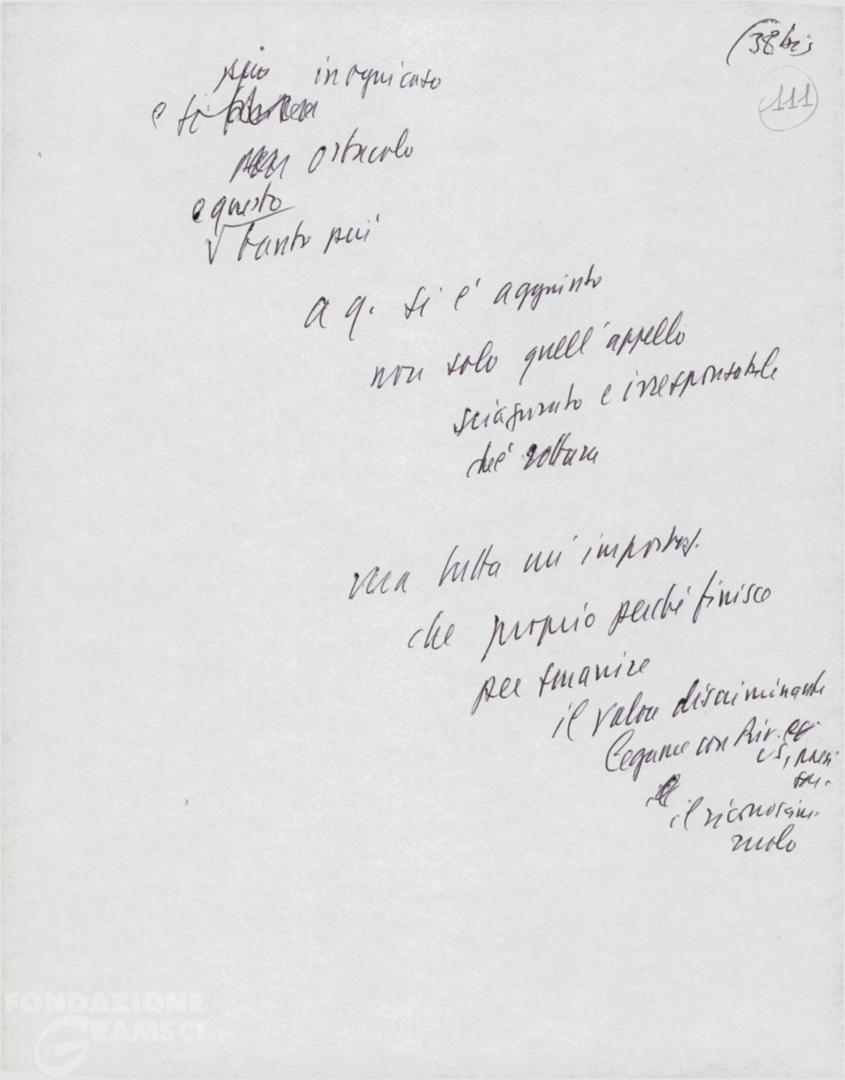 (38 bis
111
in ogni caso
e si
ostacolo
e questo
tanto più
a q. si è aggiunto
non solo quell'appello
sciagurato e irresponsabile
rottura
ma tutta un'impostaz.
che proprio perché finisce
per smarrire
il valore discriminante
legame con Riv. ott.
US,
il riconoscim.
ruolo
FONDAZIONE
GRAMSCI